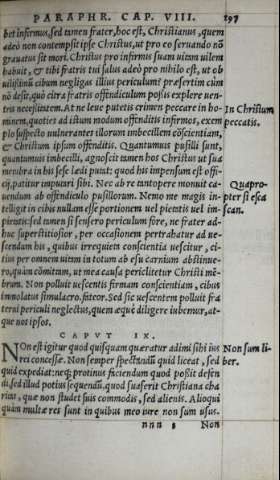 PARAPHR. CAP. VIII. 197
bet infirmus, sed tamen frater, hoc est, Christianus, quem
adeò non contempsit ipse Christus, ut pro eo seruando nō
grauatus sit mori. Christus pro infirmis suam uitam uilem
habuit, & tibi fratris tui salus adeò pro nihilo est, ut ob
uilissimū cibum negligas illius periculum? præsertim cùm
nō desit, quò citra fratis offendiculum possis explere uen-
tris necessitatem. At ne leue putetis crimen peccare in ho-
minem, quoties ad istum modum offenditis infirmos, exem
plo suspecto uulnerantes illorum imbecillem cōscientiam,
& Christum ipsum offenditis. Quantumuis pusilli sunt,
quantumuis imbecilli, agnoscit tamen hos Christus ut sua
membra in his sese lædi putat: quod his impensum est offi-
cij, patitur imputari sibi. Nec ab re tantopere monuit ca-
uendum ab offendiculo pusillorum. Nemo me magis in-
telligit in cibis nullam esse portionem uel pietatis uel im-
pietatis: sed tamen si sensero periculum fore, ne frater ad-
huc superstitiosior, per occasionem pertrahatur ad ue-
scendum his, quibus irrequieta conscientia uescitur, ci-
tius per omnem uitam in totum ab esu carnium abstinue-
ro, quàm cōmittam, ut mea causa periclitetur Christi mē-
brum. Non polluit uescentis firmam conscientiam, cibus
immolatus simulacro, fateor. Sed sic uescentem polluit fra
terni periculi neglectus, quem æquè diligere iubemur, at-
que nos ipsos.
In Christum
peccatis.
Quapro-
pter si esca
scan.
CAPVT IX.
NOn est igitur quod quisquam queratur adimi sibi ius
rei concessæ. Non semper spectandū quid liceat, sed
quid expediat: neq; protinus faciendum quod possit defen
di, sed illud potius sequendū, quod suaserit Christiana cha
ritas, quæ non studet suis commodis, sed alienis. Alioqui
quàm multæ res sunt in quibus meo iure non sum usus.
Non sum li-
ber.
nnn 3 Non